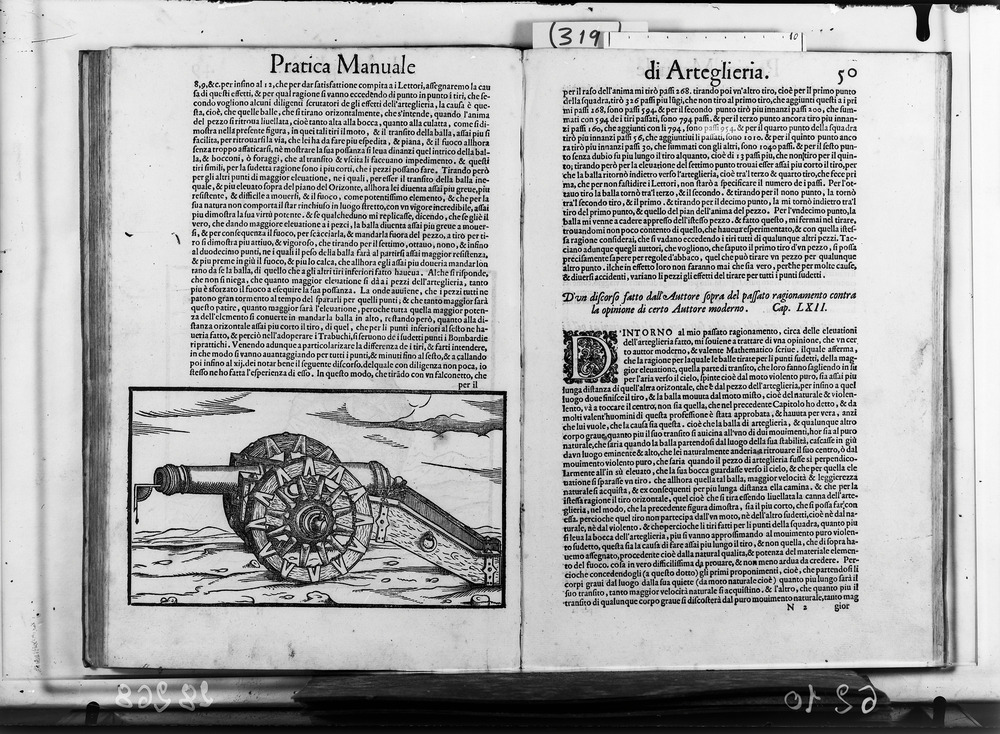 (319
10
Pratica Manuale
8,9,&c. per infino al 12, che per dar satisfattione compita a i Lettori, assegnaremo la cau
sa di questi effetti, & per qual ragione si vanno eccedendo di punto in punto i tiri, che se-
condo vogliono alcuni diligenti scrutatori de gli effetti dell'arteglieria, la causa è que-
sta, cioè, che quelle balle, che si tirano orizontalmente, che s'intende, quando l'anima
del pezzo si ritroua liuellata, cioè tanto alta alla bocca, quanto alla culatta, come si di-
mostra nella presente figura, in quei tali tiri il moto, & il transito della balla, assai piu si
facilita, per ritrouarsi la via, che lei ha da fare piu espedita, & piana, & il fuoco allhora
senza troppo affaticarsi, nè mostrare la sua possanza si leua dinanzi quel intrico della bal-
la, & bocconi, ò foraggi, che al transito & vscita li faceuano impedimento. & questi
tiri simili, per la sudetta ragione sono i piu corti, che i pezzi possano fare. Tirando però
per gli altri punti di maggior eleuatione, ne i quali, per esser il transito della balla ine-
quale, & piu eleuato sopra del piano del Orizonte, allhora lei diuenta assai piu greue, piu
resistente, & difficile a mouersi, & il fuoco, come potentissimo elemento, & che per la
sua natura non comporta il star rinchiuso in luogo stretto, con vn vigore incredibile, assai
piu dimostra la sua virtù potente. & se qualcheduno mi replicasse, dicendo, che se gliè il
vero, che dando maggiore eleuatione a i pezzi, la balla diuenta assai piu greue a mouer-
si, & per consequenza il fuoco, per scacciarla, & mandarla fuora del pezzo, a tiro per ti-
ro si dimostra piu attiuo, & vigoroso, che tirando per il settimo, ottauo, nono, & infino
al duodecimo punti, ne i quali il peso della balla farà al partirsi assai maggior resistenza,
& piu preme in giù il fuoco, & piu lo calca, che allhora egli assai piu doueria mandar lon
tano da se la balla, di quello che a gli altri tiri inferiori fatto haueua. Al che si risponde,
che non si niega, che quanto maggior eleuatione si dà a i pezzi dell'artegliería, tanto
piu è sforzato il fuoco a esequire la sua possanza. La onde auuiene, che i pezzi tutti ne
patono gran tormento al tempo del spararli per quelli punti; & che tanto maggior sarà
questo patire, quanto maggior sarà l'eleuatione, peroche tutta quella maggior poten-
za dell'elemento si conuerte in mandar la balla in alto, restando però, quanto alla di-
stanza orizontale assai piu corto il tiro, di quel, che per li punti inferiori al sesto ne ha-
ueria fatto, & perciò nell'adoperare i Trabuchi, si seruono de i sudetti punti i Bombardie
ri prattichi. Venendo adunque a particolarizare la differenza de i tiri, & farti intendere,
in che modo si vanno auantaggiando per tutti i punti, & minuti fino al sesto, & a callando
poi infino al xij. dei notar bene il seguente discorso. del quale con diligenza non poca, io
stesso ne ho fatta l'esperienza di esso. In questo modo, che tirãdo con vn falconetto, che
per il
di Arteglieria. 50
per il raso dell'anima mi tirò passi 268. tirando poi vn'altro tiro, cioè per il primo punto
della squadra, tirò 326 passi piu lũgi, che non tiro al primo tiro, che aggiunti questi a i pri
mi passi 268, sono passi 594. & per il secondo punto tirò piu innanzi passi 200, che sum-
mati con 594 de i tiri passati, sono 794 passi. & per il terzo punto ancora tiro piu innan-
zi passi 160, che aggiunti con li 794, sono passi 954. & per il quarto punto della squadra
tirò piu innanzi passi 56, che aggiuntiui li passati, sono 1010. & per il quinto punto anco
ra tirò piu inanzi passi 30, che summati con gli altri, sono 1040 passi. & per il sesto pun-
to senza dubio fu piu lungo il tiro alquanto, cioè di 13 passi piu, che non tiro per il quin-
to; tirando però per la eleuatione del settimo punto trouai esser assai piu corto il tiro, per-
che la balla ritornò indietro verso l'artegliería, cioè tra'l terzo & quarto tiro, che fece pri
ma, che per non fastidire i Lettori, non starò a specificare il numero de i passi. Per l'ot-
tauo tiro la balla tornò tra'l terzo, & il secondo. & tirando per il nono punto, la tornò
tra'l secondo tiro, & il primo. & tirando per il decimo punto, la mi tornò indietro tra'l
tiro del primo punto, & quello del pian dell'anima del pezzo. Per l'vndecimo punto, la
balla mi venne a cadere appresso dell'istesso pezzo. & fatto questo, mi fermai nel tirare,
trouandomi non poco contento di quello, che haueua esperimentato, & con quella istes-
sa ragione considerai, che si vadano eccedendo i tiri tutti di qualunque altri pezzi. Tac-
ciano adunque quegli auttori, che vogliono, che saputo il primo tiro d'vn pezzo, si possa
precisamente sapere per regole d'abbaco, quel che può tirare vn pezzo per qualunque
altro punto. ilche in effetto loro non faranno mai che sia vero, perche per molte cause,
& diuersi accidenti, variano li pezzi gli effetti del tirare per tutti i punti sudetti.
D'vn discorso fatto dall'Auttore sopra del passato ragionamento contra
la opinione di certo Auttore moderno. Cap. LXII.
DINTORNO al mio passato ragionamento, circa delle eleuationi
dell'artegliería fatto, mi souiene a trattare di vna opinione, che vn cer
to auttor moderno, & valente Mathematico scriue. il quale afferma,
che la ragione per la quale le balle tirate per li punti sudetti, della mag-
gior eleuatione, quella parte di transito, che loro fanno sagliendo in su
per l'aria verso il cielo, spinte cioè dal moto violento puro, sia assai piu
lunga distanza di quell'altra orizontale, che è dal pezzo dell'artegliería, per insino a quel
luogo doue finisce il tiro, & la balla mouuta dal moto misto, cioè del naturale & violen-
lento, và a toccare il centro, non sia quella, che nel precedente Capitolo ho detto, & da
molti valent'huomini di questa professione è stata approbata, & hauuta per vera, anzi
che lui vuole, che la causa sia questa. cioè che la balla di artegliería, & qualunque altro
corpo graue, quanto piu il suo transito si auicina all'vno di dui mouimenti, hor sia al puro
naturale, che saria quando la balla partendosi dal luogo della sua stabilità, cascasse in giù
da vn luogo eminente & alto, che lei naturalmente anderia a ritrouare il suo centro, ò dal
mouimento violento puro, che saria quando il pezzo di artegliería fusse sì perpendico-
larmente all'in sù eleuato, che la sua bocca guardasse verso il cielo, & che per quella ele
uatione si sparasse vn tiro. che allhora quella tal balla, maggior velocità & leggierezza
naturale si acquista, & ex consequenti per piu lunga distanza ella camina. & che per la
istessa ragione il tiro orizontale, quel cioè che si tira essendo liuellata la canna dell'arte-
glieria, nel modo, che la precedente figura dimostra, sia il piu corto, che si possa far con
essa. percioche quel tiro non participa dall'vn moto, nè dell'altro sudetti, cioè nè dal na-
turale, nè dal violento. & che percioche li tiri fatti per li punti della squadra, quanto piu
si leua la bocca dell'artegliería, piu si vanno approssimando al mouimento puro violen-
to sudetto, questa sia la causa di fare assai piu lungo il tiro, & non quella, che di sopra ha-
uemo assegnato, procedente cioè dalla natural qualità, & potenza del materiale elemen-
to del fuoco. cosa in vero difficilissima da prouare, & non meno ardua da credere. Per-
cioche concedendogli (a questo dotto) gli primi proponimenti, cioè, che partendosi li
corpi graui dal luogo dalla sua quiete (da moto naturale cioè) quanto piu lungo sarà il
suo transito, tanto maggior velocità naturale si acquistino. & l'altro, che quanto piu il
transito di qualunque corpo graue si discosterà dal puro mouimento naturale, tanto mag
N 2 gior
28268
6210